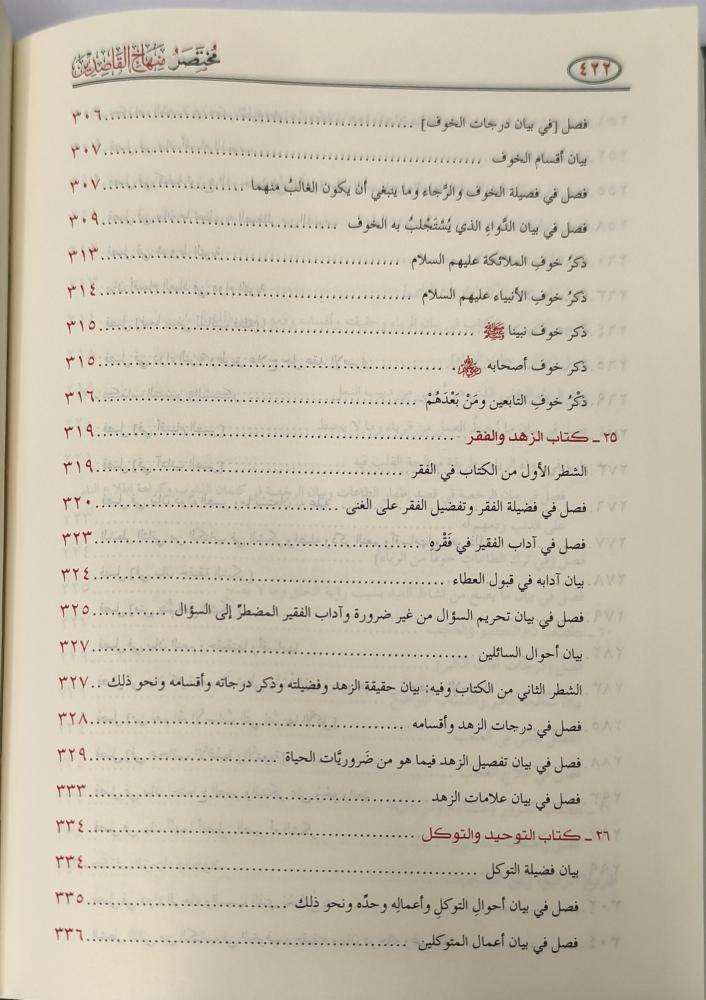 مُخْتَصَرُ مِنْهَاجِ القَاصِدِيْن
٤٢٢
فصل [في بيان درجات الخوف] ٣٠٦
بيان أقسام الخوف ٣٠٧
فصل في فضيلة الخوف والرَّجاء وما ينبغي أن يكون الغالبُ منهما ٣٠٧
فصل في بيان الدَّواءِ الذي يُسْتَجْلبُ به الخوف ٣٠٩
ذكرُ خوفِ الملائكة عليهم السلام ٣١٣
ذكرُ خوفِ الأنبياء عليهم السلام ٣١٤
ذكر خوف نبينا ﷺ ٣١٥
ذكر خوف أصحابه ٣١٥
ذكْرُ خوفِ التابعين ومَنْ بَعْدَهُمْ ٣١٦
٢٥ ـ كتاب الزهد والفقر ٣١٩
الشطر الأول من الكتاب في الفقر ٣١٩
فصل في فضيلة الفقر وتفضيل الفقر على الغنى ٣٢٠
فصل في آداب الفقير في فَقْرِهِ ٣٢٣
بيان آدابه في قبول العطاء ٣٢٤
فصل في بيان تحريم السؤال من غير ضرورة وآداب الفقير المضطرّ إلى السؤال ٣٢٥
بيان أحوال السائلين ٣٢٧
الشطر الثاني من الكتاب وفيه: بيان حقيقة الزهد وفضيلته وذكر درجاته وأقسامه ونحو ذلك ٣٢٧
فصل في درجات الزهد وأقسامه ٣٢٨
فصل في بيان تفصيل الزهد فيما هو من ضَروريَّات الحياة ٣٢٩
فصل في بيان علامات الزهد ٣٣٣
٢٦ ـ كتاب التوحيد والتوكل ٣٣٤
بيان فضيلة التوكل ٣٣٤
فصل في بيان أحوالِ التوكلِ وأعمالِه وحدِّه ونحو ذلك ٣٣٥
فصل في بيان أعمال المتوكلين ٣٣٦